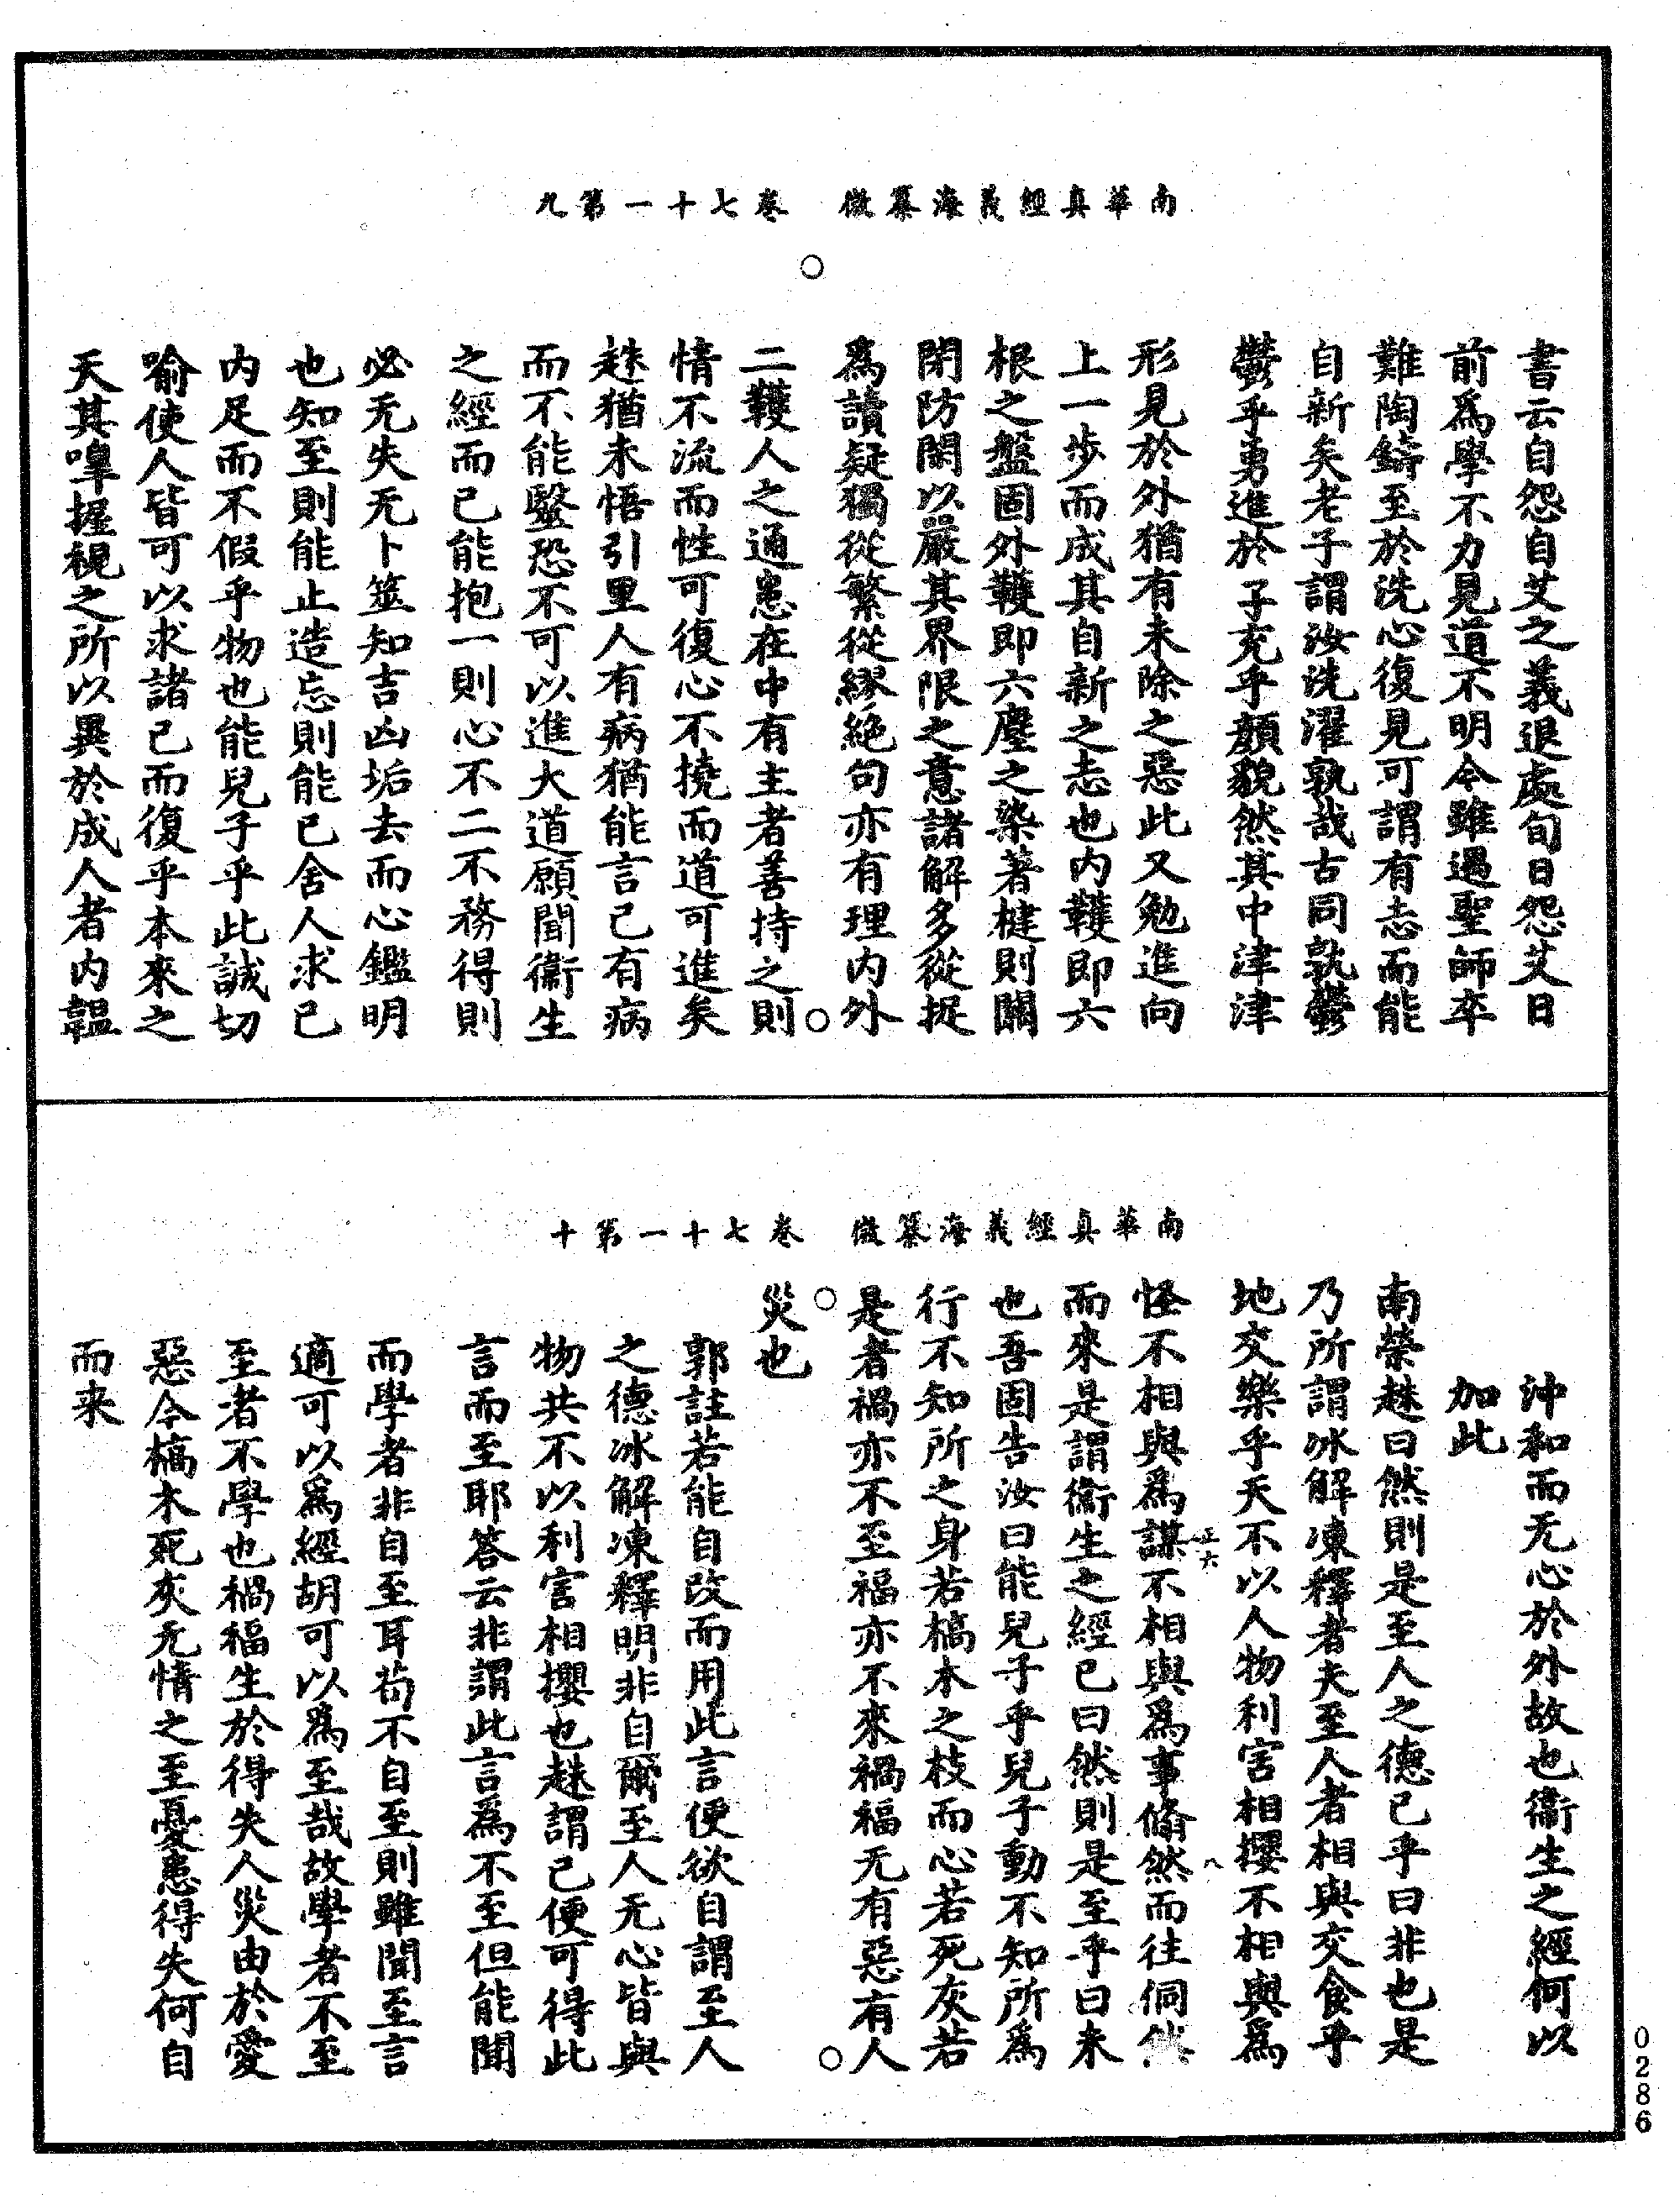 南華真經義海纂微　卷七十一第九
書云自怨自艾之義退處旬日怨艾日
前爲學不力見道不明今雖遇聖師卒
難陶鑄至於洗心復見可謂有志而能
自新矣老子謂汝洗濯孰哉古同孰鬱
鬱乎勇進於子充乎顏貌然其中津津
形見於外猶有未除之惡此又勉進向
上一步而成其自新之志也内韄即六
根之盤固外韄即六塵之染著楗則關
閉防閑以嚴其界限之意諸解多從捉
爲讀疑獨從繁從繆絶句亦有理内外
二韄人之通患在中有主者善持之則
情不流而性可復心不撓而道可進矣
趎猶未悟引里人有病猶能言己有病
而不能毉恐不可以進大道願聞衞生
之經而已能抱一則心不二不務得則
必无失无卜筮知吉凶垢去而心鑑明
也知至則能止造忘則能已舍人求己
内足而不假乎物也能兒子乎此誠切
喻使人皆可以求諸己而復乎本來之
天其嘷握視之所以異於成人者内韞
南華真經義海纂微　卷七十一第十
沖和而无心於外故也衞生之經何以
加此
南榮趎曰然則是至人之德已乎曰非也是
乃所謂冰解凍釋者夫至人者相與交食乎
地交樂乎天不以人物利害相攖不相與爲
怪不相與爲謀不相與爲事翛然而往侗然
而來是謂衞生之經已曰然則是至乎曰未
也吾固告汝曰能兒子乎兒子動不知所爲
行不知所之身若槁木之枝而心若死灰若
是者禍亦不至福亦不來禍福无有惡有人
災也
郭註若能自改而用此言便欲自謂至人
之德冰解凍釋明非自爾至人无心皆與
物共不以利害相攖也趎謂己便可得此
言而至耶答云非謂此言爲不至但能聞
而學者非自至耳苟不自至則雖聞至言
適可以爲經胡可以爲至哉故學者不至
至者不學也禍福生於得失人災由於愛
惡今槁木死灰无情之至憂患得失何自
而来
正六
八
0286